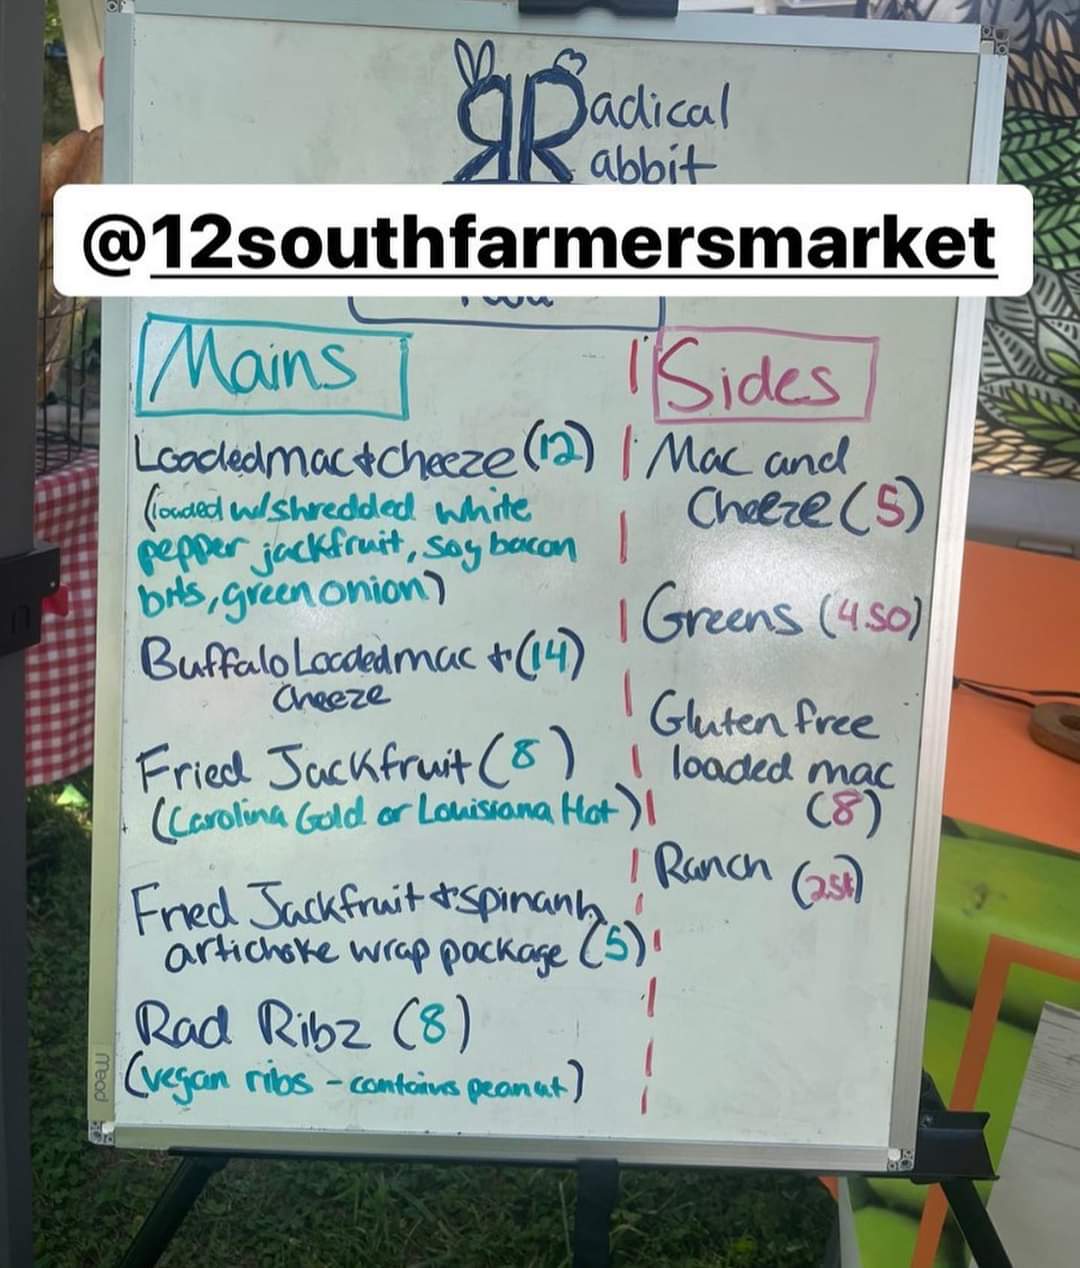 Radical
Rabbit
@12southfarmersmarket
Mains
Loaded mac + cheeze (12)
(loaded w/shredded white
pepper jackfruit, soy bacon
bits, green onion)
Buffalo Loaded mac + (14)
Cheeze
Fried Jackfruit (8)
(Carolina Gold or Louisiana Hot)
Fried Jackfruit + spinanh
artichoke wrap package (5)
Rad Ribz (8)
(vegan ribs - contains peanut)
Sides
Mac and
Cheeze (5)
Greens (4.50)
Gluten free
loaded mac
(8)
Ranch
mead